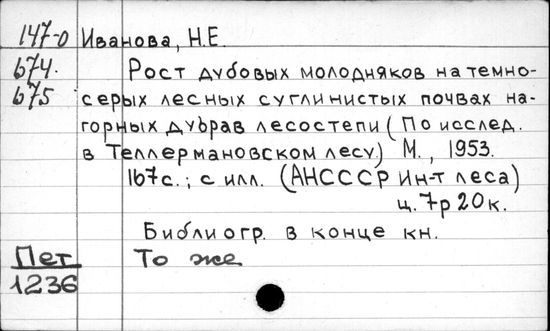 147-о Иванова, Н.Е.
674. Рост дубовых молодняков на темно-
675 серых лесных суглинистых почвах на-
горных дубрав лесостепи (По исслед.
в Теллермановском лесу) М., 1953.
167с.; с илл. (АНСССР Ин-т леса)
ц. 7р 20к.
Библиогр. в конце кн.
Пет То же
1236